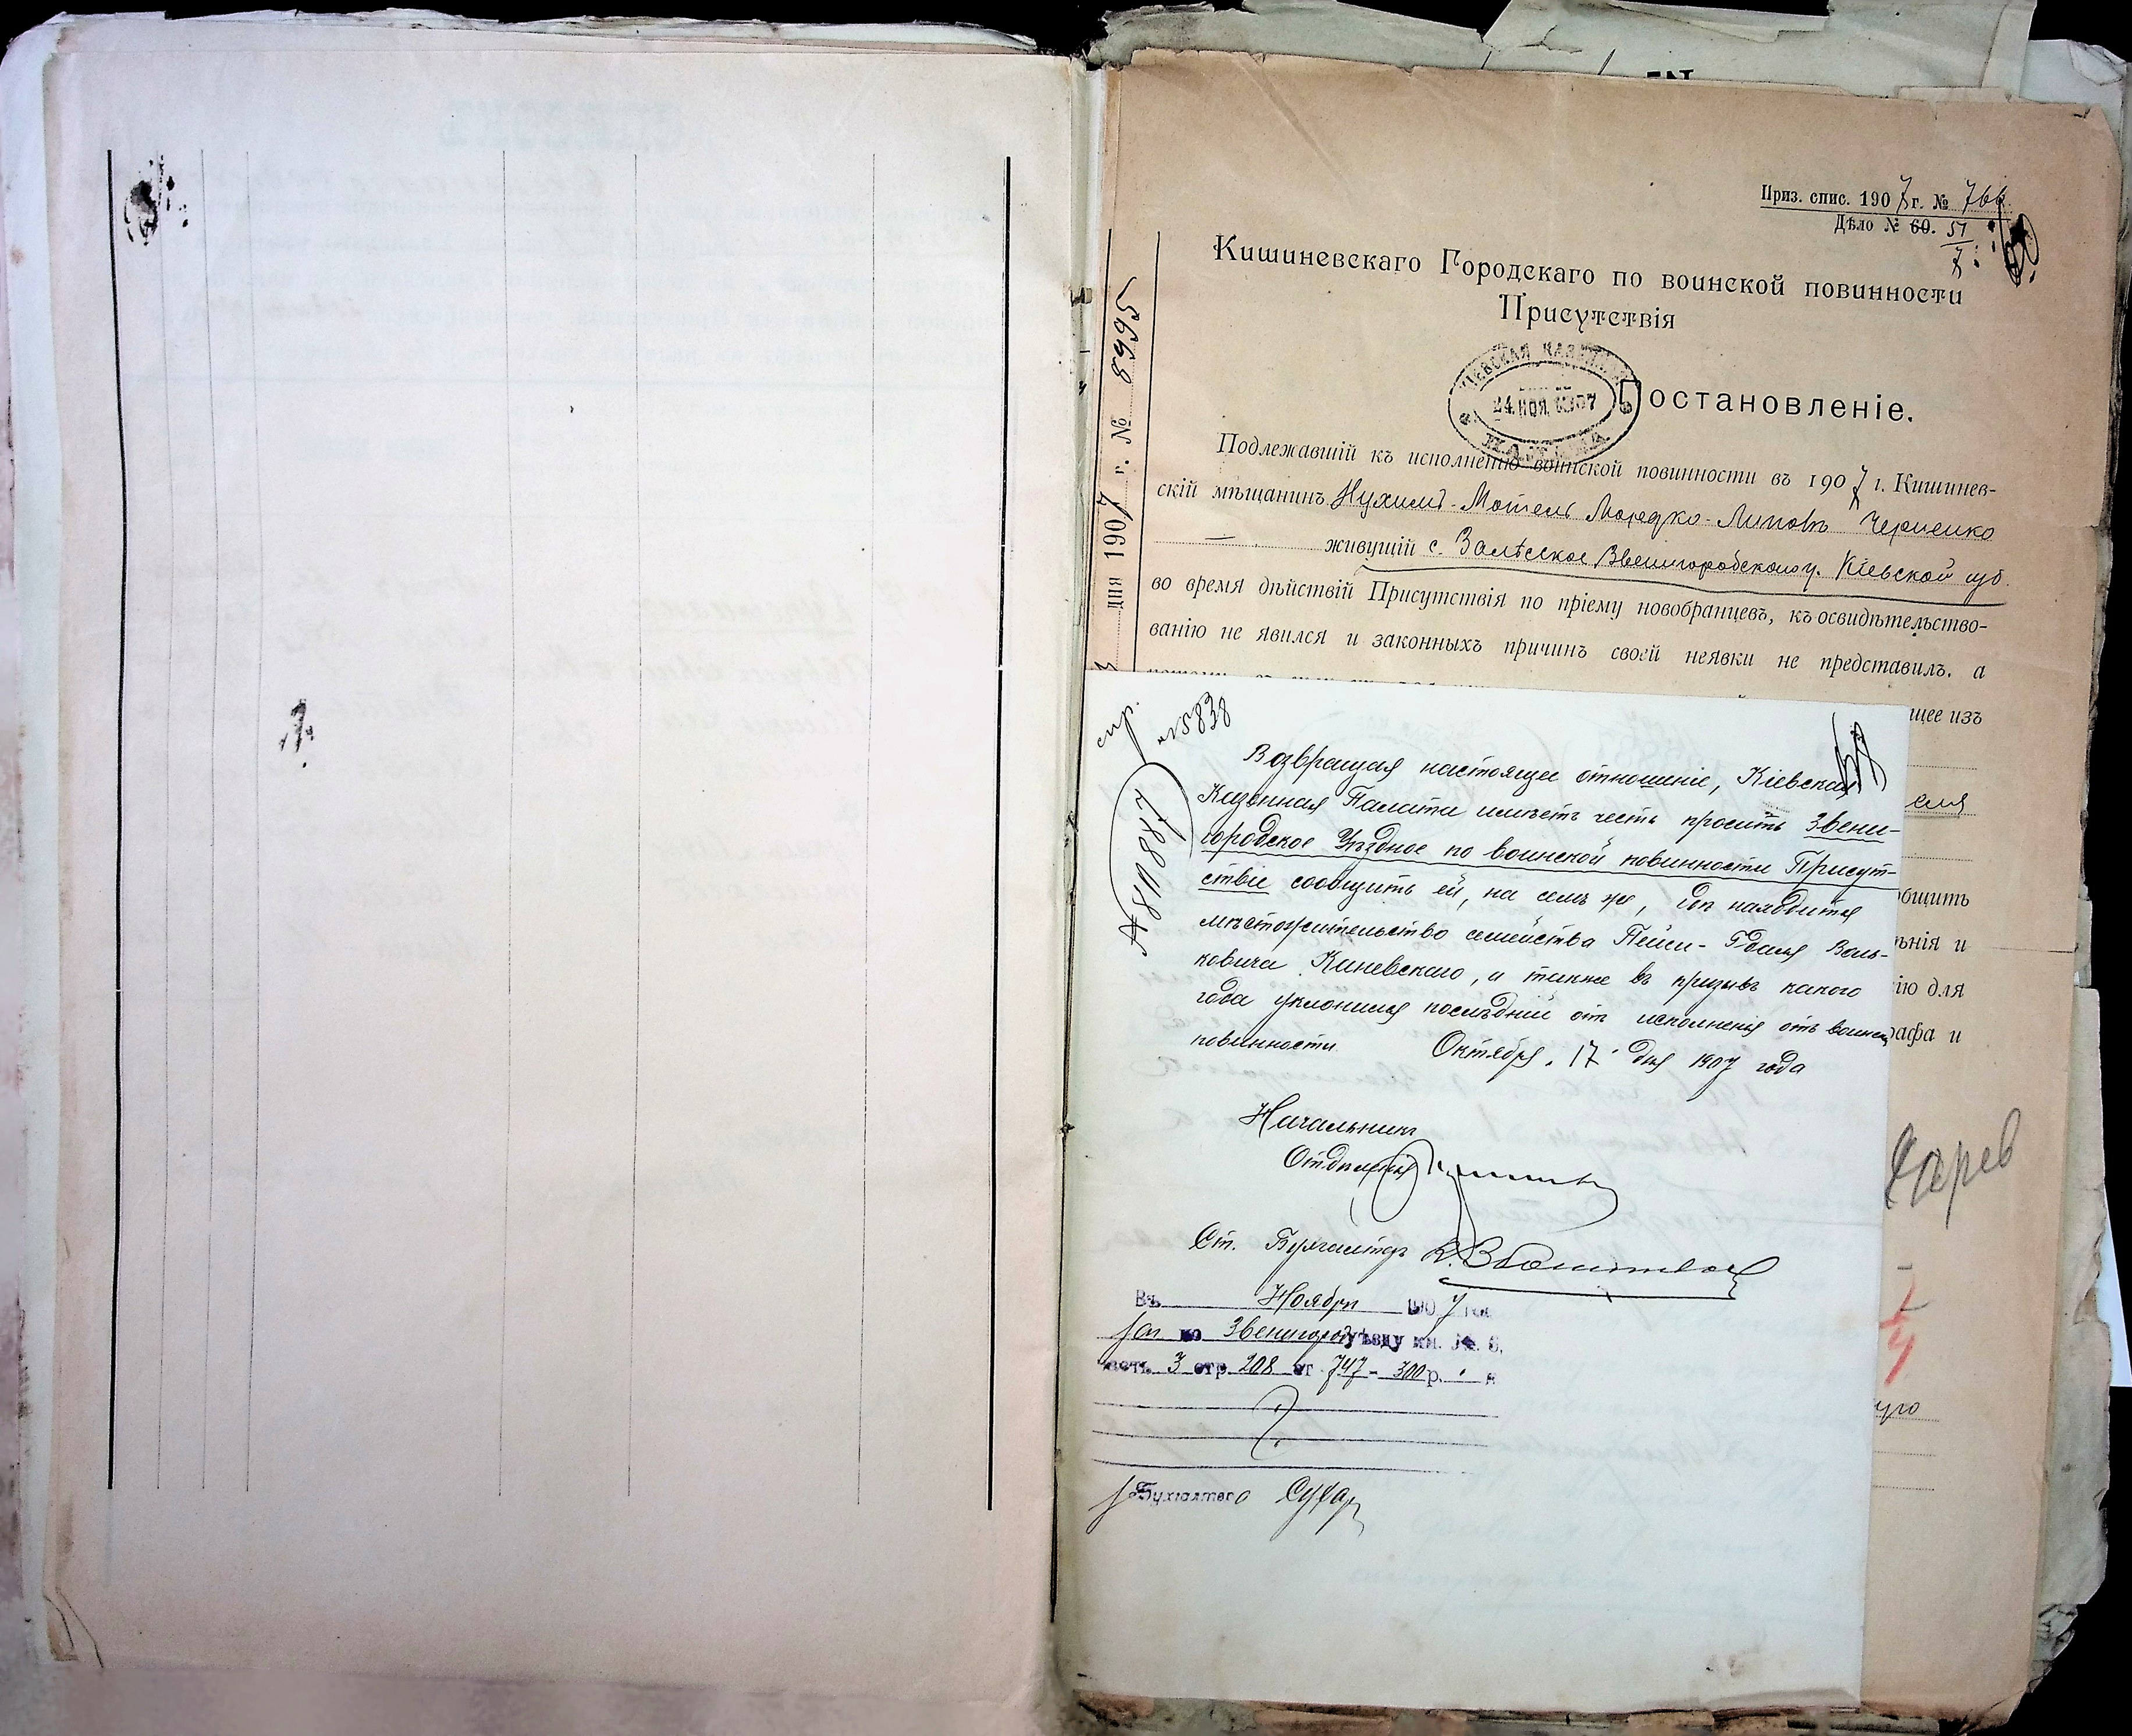 Приз. спис. 1907 г. № 766
Дѣло № 60. 51
7
Кишиневскаго Городскаго по воинской повинности
Присутствія
24 НОЯ 1907
Постановленіе.
Подлежавшій къ исполненію воинской повинности въ 1907 г. Кишинев-
скій мѣщанинъ Нухимъ-Мотель Мордко-Липовъ Черненко
живущій с. Залѣсское Звенигородскаго у. Кіевской губ.
во время дѣйствій Присутствія по пріему новобранцевъ, къ освидѣтельство-
ванію не явился и законныхъ причинъ своей неявки не представилъ, а
щее изъ
бщить
ѣнія и
ію для
афа и
дня 1907 г. № 8995
стр.
№5838
Возвращая настоящее отношеніе, Кіевская
Казенная Палата имѣетъ честь просить Звени-
городское Уѣздное по воинской повинности Присут-
ствіе сообщить ей, на семъ же, гдѣ находится
мѣстожительство семейства Пейси-Гдаля Воль-
ковича Каневскаго, а также въ призывъ какого
года уклонился послѣдній отъ исполненія отъ воинск
повинности Октября 17 дня 1907 года
Начальникъ
Отдѣленія
Ст. Бухгалтеръ
Въ Ноябрь 1907 год
по Звенигород уѣзду кн. № 6.
часть 3 стр 208 ст 747 - 300 р. к
Бухгалтера